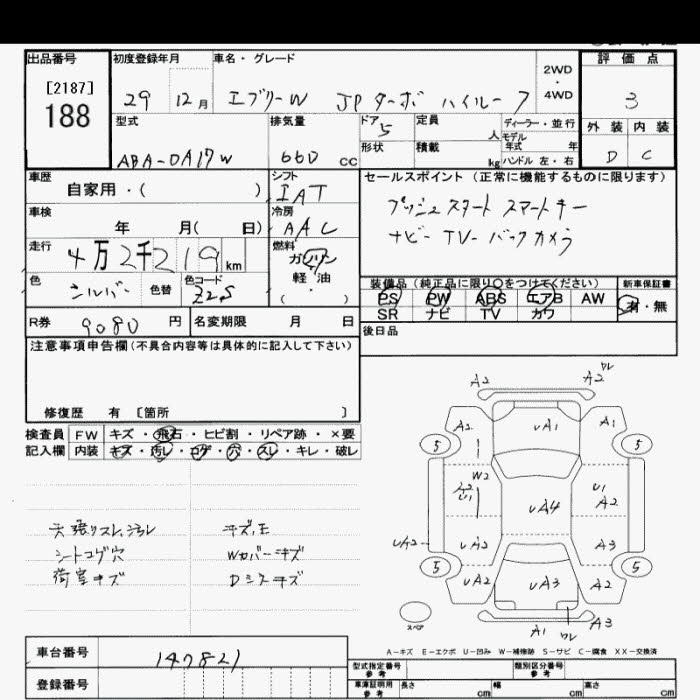 出品番号
[2187]
188
初度登録年月
29 12月
車名・グレード
エブリーW JPターボ ハイルーフ
2WD
・
4WD
評価点
3
型式
ABA-DA17W
排気量
660 CC
ドア 5
形状
定員 人
積載 kg
ディーラー・並行
モデル
年式 年
ハンドル 左・右
外装 内装
D C
車歴
自家用・( )
シフト
IAT
車検
年 月( 日)
冷房
AAC
走行
4万2千219km
燃料
ガソリン
軽・油
( )
色
シルバー
色替
色コード
Z2S
R券 9080 円
名変期限 月 日
セールスポイント(正常に機能するものに限ります)
プッシュスタート スマートキー
ナビー TVーバックカメラ
装備品(純正品に限り○をつけてください)
新車保証書
PS PW ABS エアB AW
SR ナビ TV カワ
有・無
後日品
注意事項申告欄(不具合内容等は具体的に記入して下さい)
修復歴 有 [箇所 ]
検査員 FW キズ・飛石・ヒビ割・リペア跡・×要
記入欄 内装 キズ・汚レ・コゲ・穴・スレ・キレ・破レ
天張リスレ、汚レ
シートコゲ穴
荷室キズ
キズ、E
Wカバーキズ
Dシタキズ
A2 A2 ワレ
A2 UA1 A1
5 5
W2
A2
U1
UA4
U1
A2
UA2
UA2 A3
5 5
UA2 UA3 A2
スペア
A1 ワレ A3
A-キズ E-エクボ U-凹み W-補修跡 S-サビ C-腐食 XX-交換済
車台番号
147821
登録番号
型式指定番号
参考
類別区分番号
参考
車庫証明用
参考
長さ cm 幅 cm 高さ cm